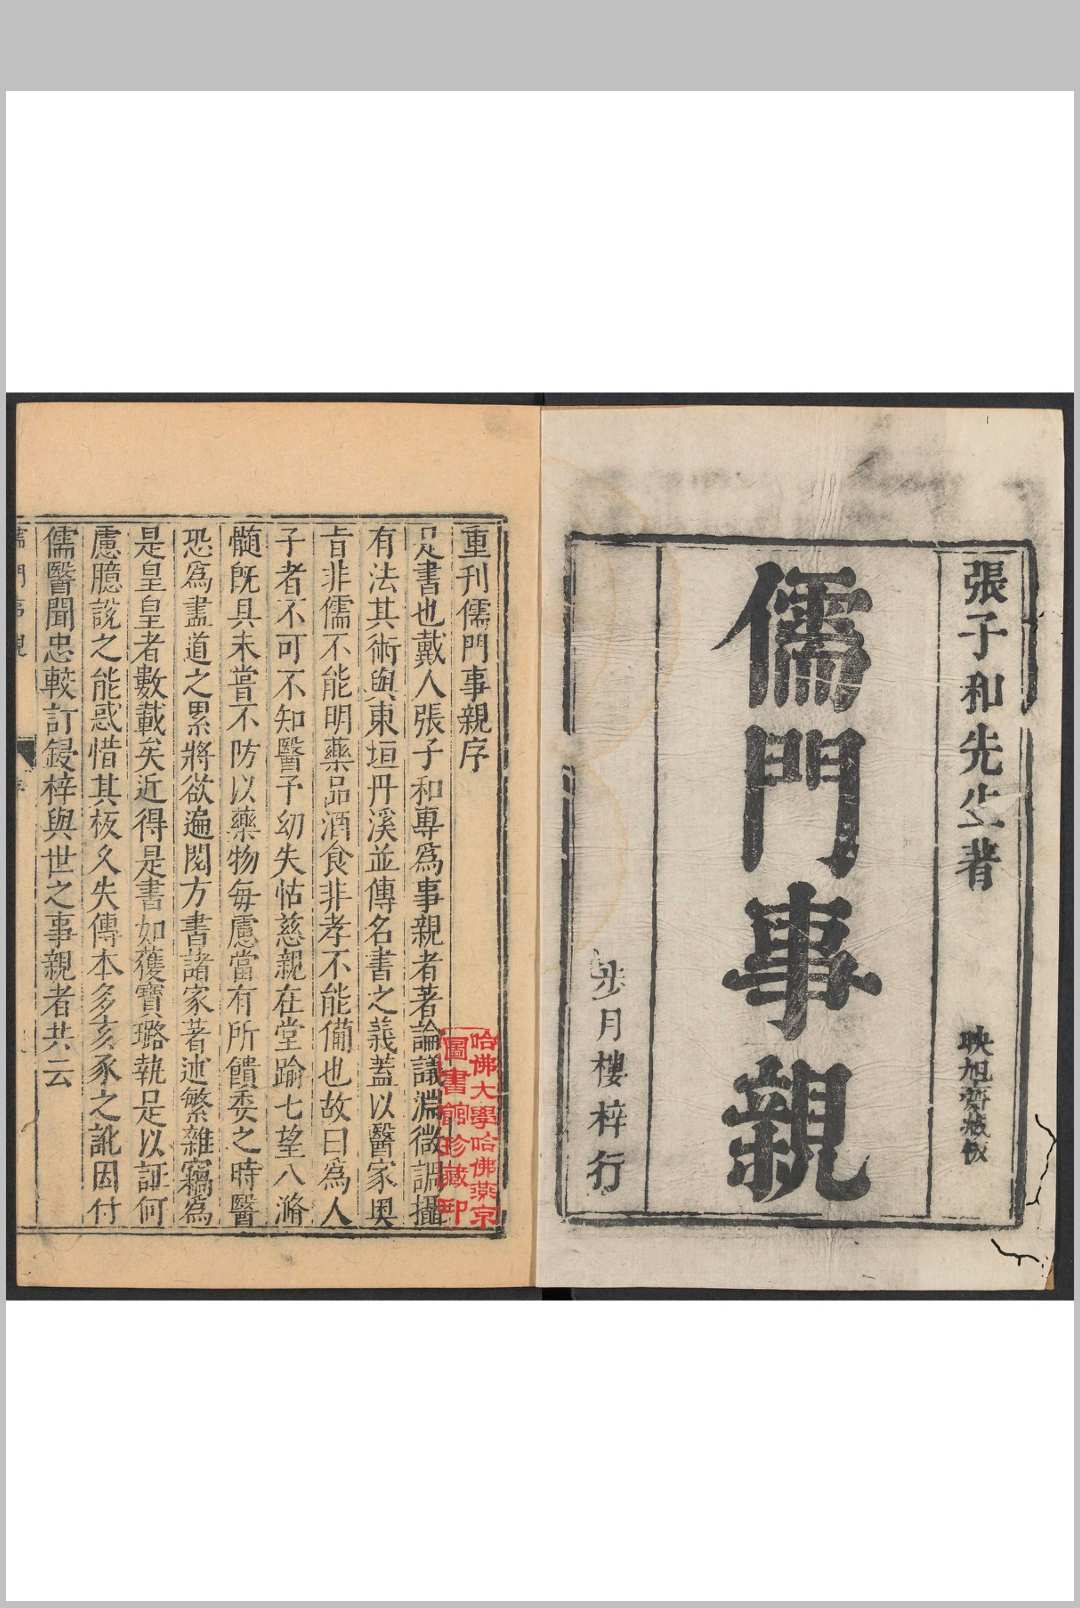 張子和先生著
映旭齋藏板
儒門事親
步月樓梓行
重刊儒門事親序
是書也戴人張子和專爲事親者著論議淵微調攝
有法其術與東垣丹溪並傳名書之義蓋以醫家奥
旨非儒不能明藥品酒食非孝不能備也故曰爲人
子者不可不知醫予幼失怙慈親在堂踰七望八滫
髓旣具未嘗不防以藥物每慮當有所饋委之時醫
恐爲盡道之累將欲遍閱方書諸家著述繁雜竊爲
是皇皇者數載矣近得是書如獲寶璐執是以証何
慮臆說之能惑惜其板久失傳本多亥豕之訛因付
儒醫聞忠較訂鋟梓與世之事親者共云
哈佛大學哈佛燕京
圖書館珍藏印
儒門事親
序